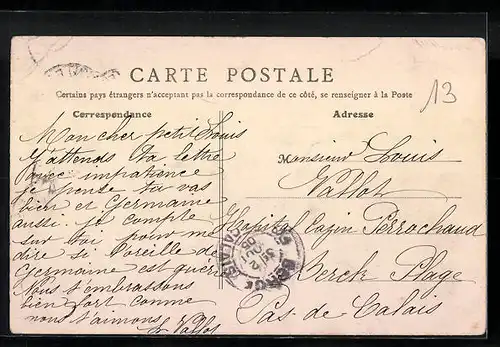 CARTE POSTALE
Certains pays étrangers n'acceptant pas la correspondance de ce côté, se renseigner à la Poste
Correspondance
Adresse
13
Mon cher petit Louis
J'attends ta lettre
avec impatience
je pense ta vas
bien et Germaine
aussi. je compte
sur toi pour me
dire si l'oreille de
Germaine est guérie
Nous t'embrassons
bien fort comme
nous t'aimons
Vallot
Monsieur Louis
Vallot
Hopital Cazin Perrochaud
Berck Plage
Pas de Calais